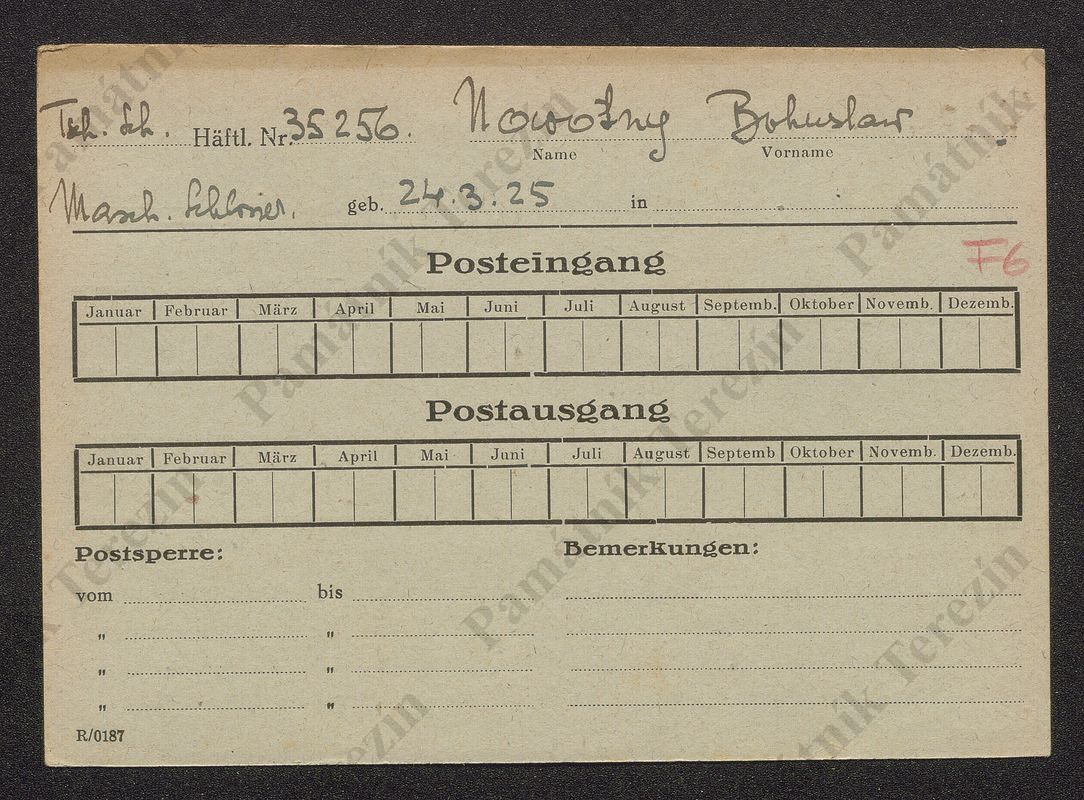 Tsch. Sch. Häftl. Nr. 35256. Nowotny Bohuslav
Name Vorname
Masch. Schlosser. geb. 24.3.25 in
Posteingang F6
Januar Februar März April Mai Juni Juli August Septemb. Oktober Novemb. Dezemb.
Postausgang
Januar Februar März April Mai Juni Juli August Septemb Oktober Novemb. Dezemb.
Postsperre: Bemerkungen:
vom bis
" "
" "
" "
R/0187
Památník Terezín